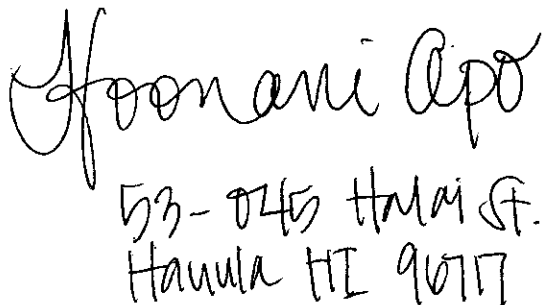 Hoonani Apo
53-045 Halai St.
Hauula HI 96717